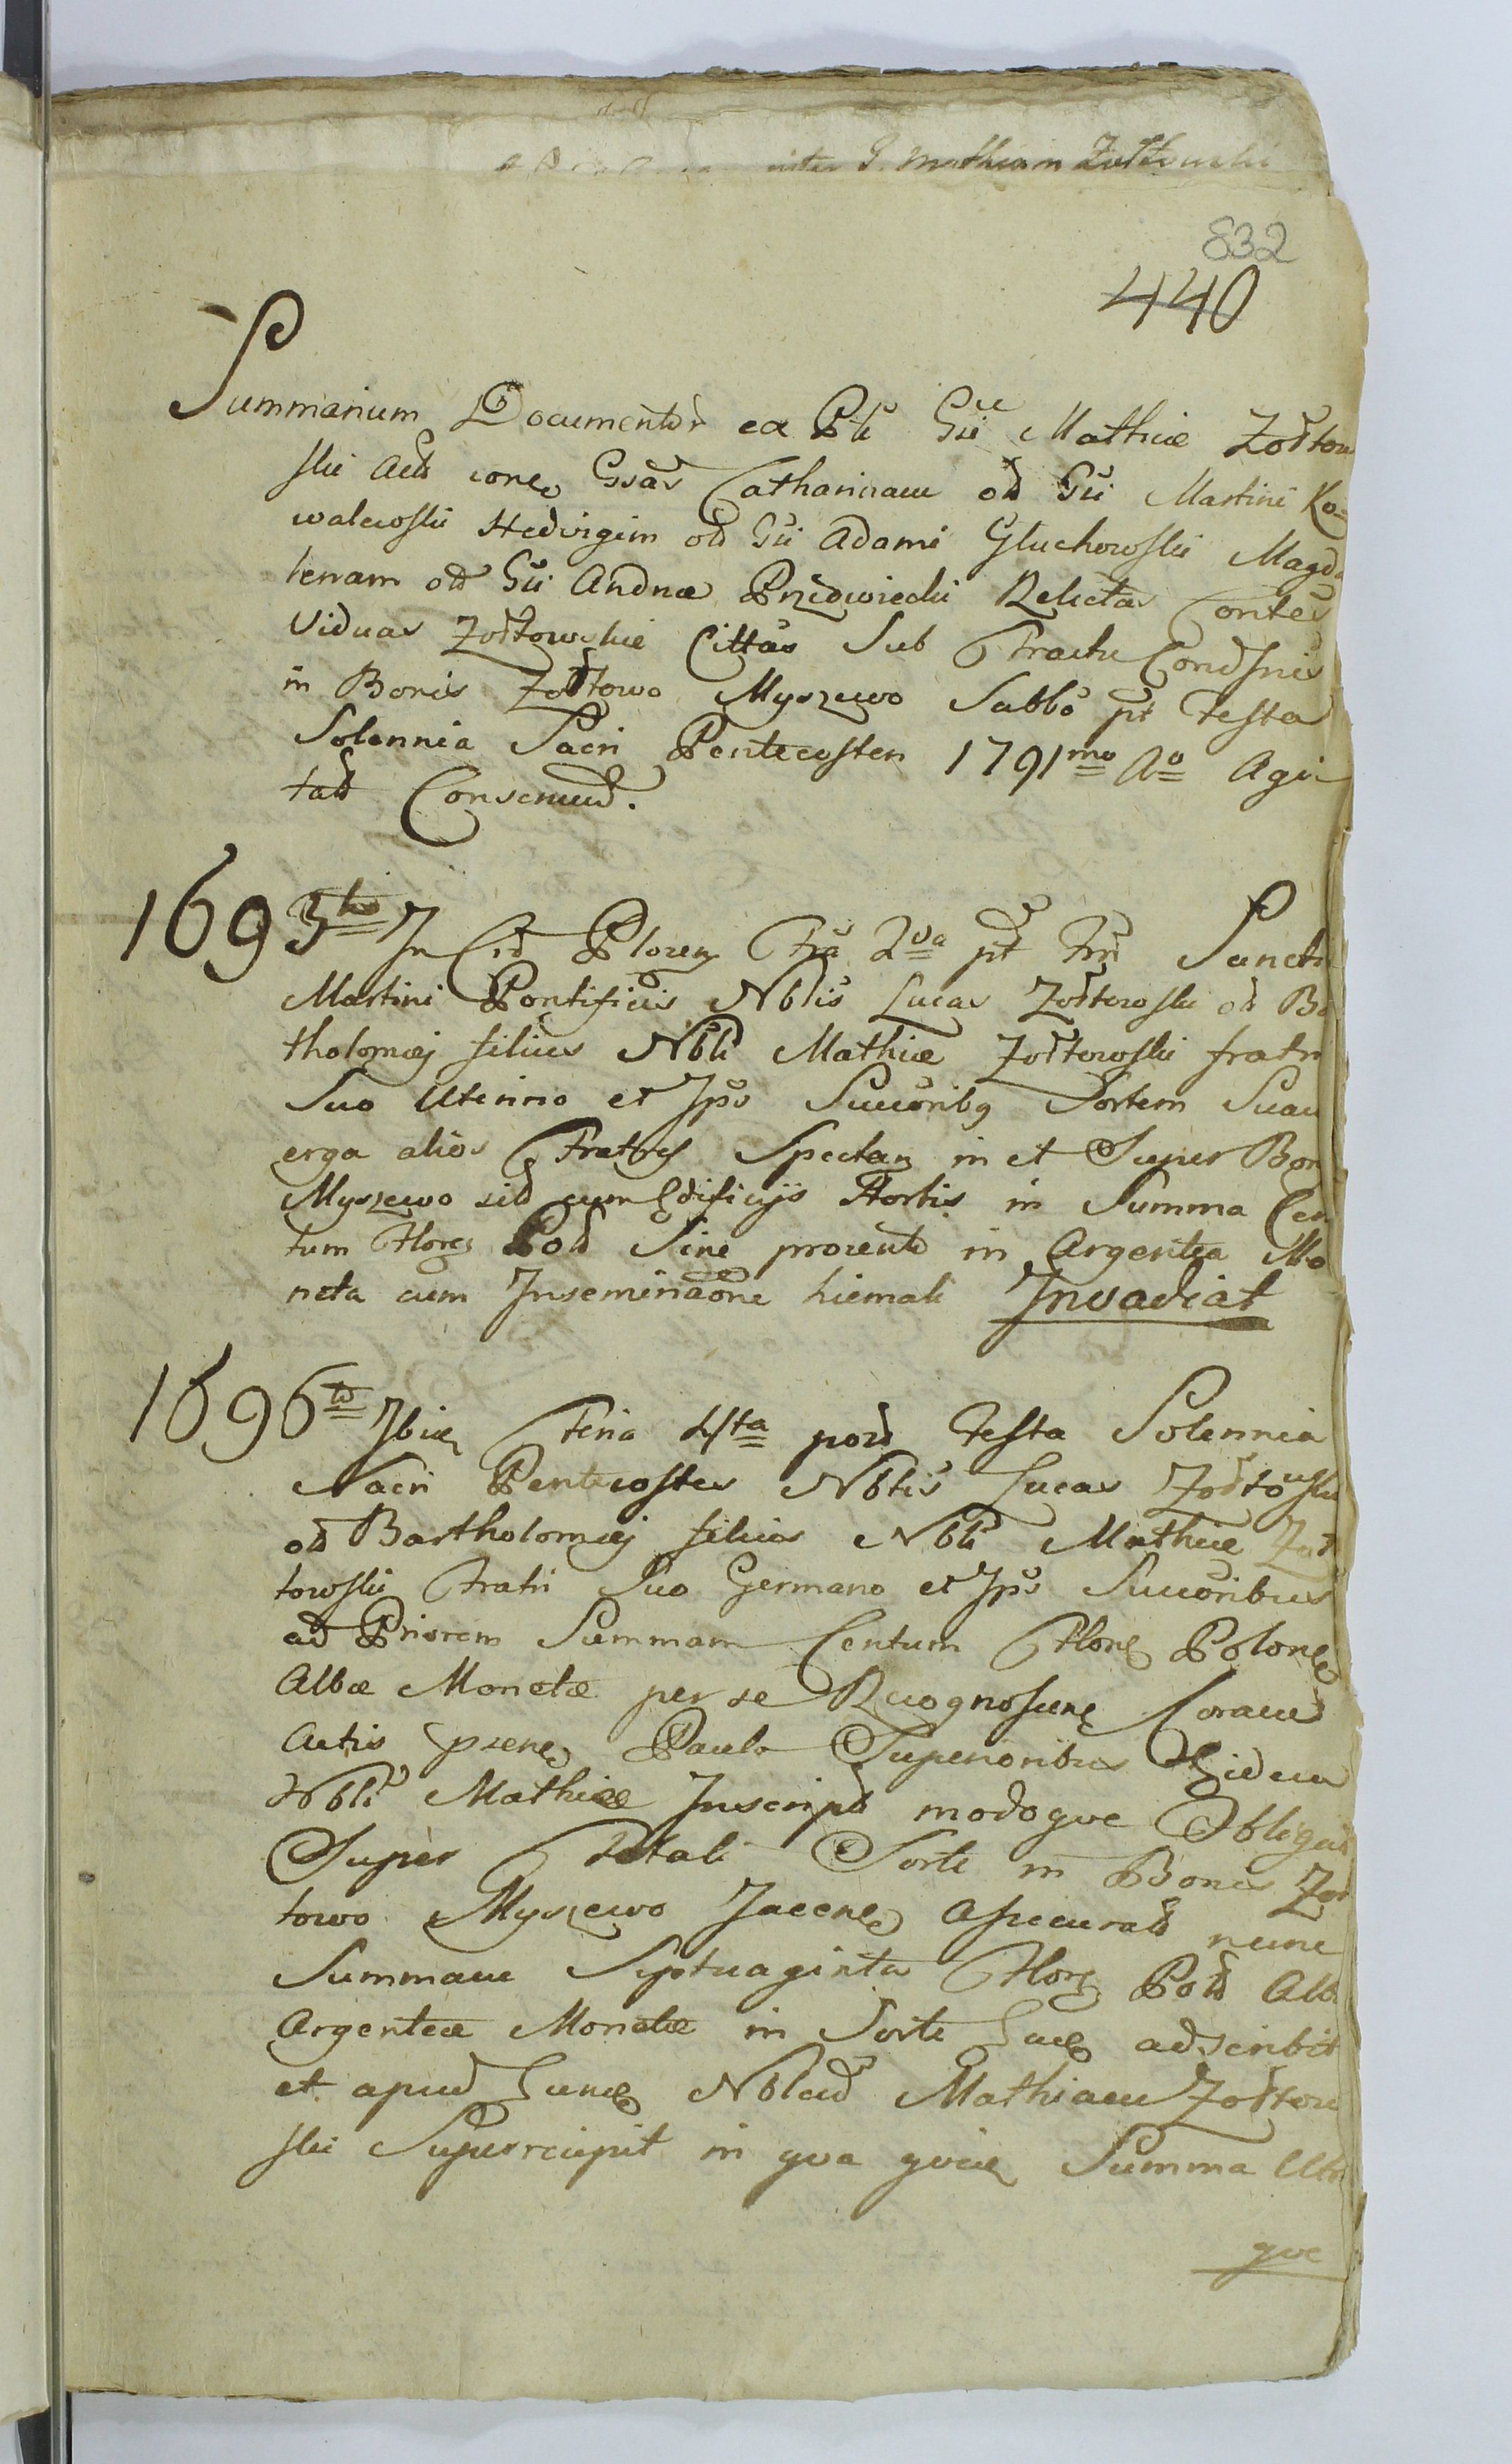 inter G. Mathiam Zołtowski
832
440
Summarium Documentor ex Pte Gii Mathiæ Zołtow
ski Act conę Gsas Catharinam od Gii Martini Ko=
walewski Hedvigim od Gii Adami Gluchowski Magda
lenam od Gii Andræ Przedwiecki Relictas Contes
Viduas Zołtowskie Cittas Sub Tractu Condsnis
in Bonis Zołtowo Myszewo Sabbo pt Festa
Solennia Sacri Pentecosten 1791mo Ao Agi
tatt Conscriud.
1693tio In Cid Plocen Fria 2da pt Frm Sancti
Martini Pontificis Nblis Lucas Zołtowski od Ba
tholomæj filius Nbli Mathiæ Zołtowski fratri
Suo Uterino et Jpso Succoribq Sortem Suam
erga alios Fratres Spectan in et Super Bon
Myszewo sitt cum Ædificijs Hortis in Summa Cen
tum Floreg Poll Sine provent in Argentea Mo
neta cum Inseminaõne hiemali Invadiat
1696to Ibidę Feria 4ta post Festa Solennia
Sacri Pentecostes Nblis Lucas Zołtowski
od Bartholomæj filius Nbli Mathiæ Zoł
towski Fratri Suo Germano et Jpso Succoribus
ad Priorem Summam Centum Florę Polonę
Albæ Monetæ per se Recognoscenę Coram
Actis psenę Paulo Superioribus Eidem
Nbli Mathiæ Inscript modoque Obligat
Super Totali Sorte in Bonis Zoł
towo Myszewo Jacenę Assecuratt nunc
Summam Septuaginta Florę Poll Alb
Argenteæ Monetæ in Sorte Suaę adscribit
et apud Eundę Nblem Mathiam Zołtow
ski Superrecipit in qva qvidę Summa Utra
qve